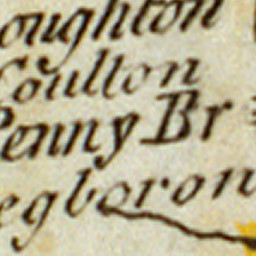 oughton
Coulton
Penny Br
egboron